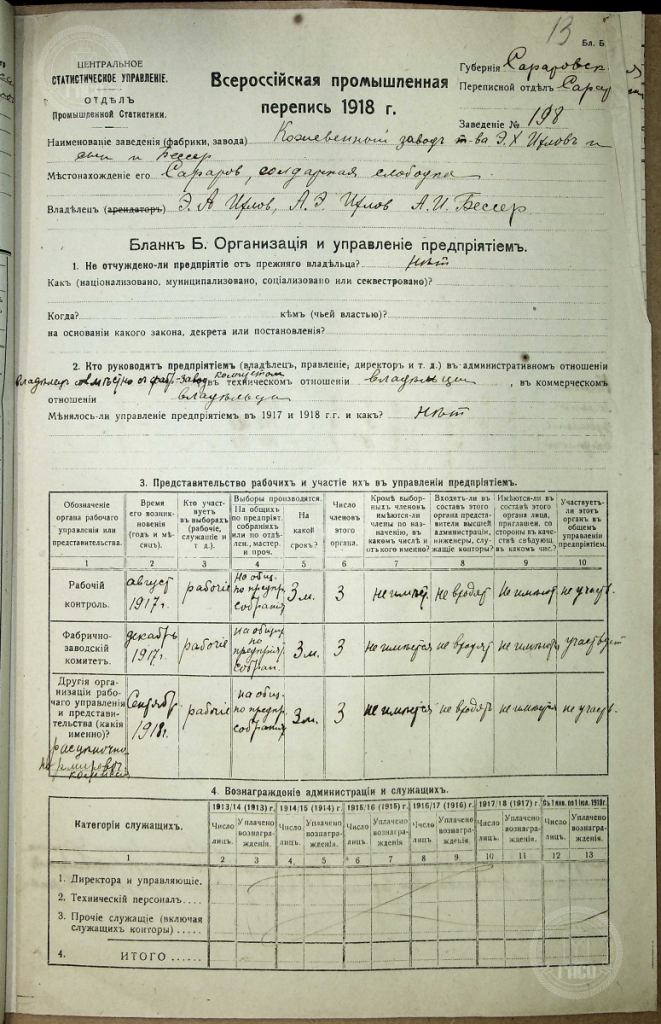 13
Бл. Б
ЦЕНТРАЛЬНОЕ
СТАТИСТИЧЕСКОЕ УПРАВЛЕНИЕ.
ОТДѢЛЪ
Промышленной Статистики.
Всероссійская промышленная
перепись 1918 г.
Губернія Саратовск
Переписной отдѣлъ Сарат
Заведеніе № 198
Наименованіе заведенія (фабрики, завода) Кожевенный заводъ т-ва Э. Х
и Бессер
Мѣстонахожденіе его Саратов, слободка
Владѣлецъ (арендаторъ) Э. А. А. Э. А. И. Бессер
Бланкъ Б. Организація и управленіе предпріятіемъ.
1. Не отчуждено-ли предпріятіе отъ прежняго владѣльца? Нѣт
Какъ (націонализовано, муниципализовано, соціализовано или секвестровано)?
Когда? кѣмъ (чьей властью)?
на основаніи какого закона, декрета или постановленія?
2. Кто руководитъ предпріятіемъ (владѣлецъ, правленіе, директоръ и т. д.) въ административномъ отношеніи
совмѣстно с фабр.-завод комитетом въ техническомъ отношеніи владѣльцы, въ коммерческомъ
отношеніи владѣльцы
Мѣнялось-ли управленіе предпріятіемъ въ 1917 и 1918 г.г. и какъ? Нѣт
3. Представительство рабочихъ и участіе ихъ въ управленіи предпріятіемъ.
Обозначеніе органа рабочаго управленія или представительства. Время его возникновенія (годъ и мѣсяцъ). Кто участвуетъ въ выборахъ (рабочіе, служащіе и т. д.). Выборы производятся. На общихъ по предпріят. собраніяхъ или по отдѣлен, мастер. и проч. На какой срокъ? Число членовъ этого органа. Кромѣ выборныхъ членовъ имѣются-ли члены по назначенію, въ какомъ числѣ и отъ кого именно? Входятъ-ли въ составъ этого органа представители высшей администраціи, инженеры, служащіе конторы? Имѣются-ли въ составѣ этого органа лица, приглашен. со стороны въ качествѣ свѣдущ. въ каком числ.? Участвуетъ-ли этотъ органъ въ общемъ управленіи предпріятіем.
1 2 3 4 5 6 7 8 9 10
Рабочій контроль. август 1917 г. рабочіе на общ. по предпр. собраніях 3 м. 3 не имѣют. не входят не имѣют не участв.
Фабрично-заводскій комитетъ. декабрь 1917 г. рабочіе на общ по предпріят. собран. 3 м. 3 не имѣются не входят не имѣются участвует
Другія организаціи рабочаго управленія и представительства (какія именно)? расцѣночно нормировоч комиссія Сентябр 1918 г. рабочіе на общ. по предпр. собраніях 3 м. 3 не имѣются не входят не имѣются не участв.
4. Вознагражденіе администраціи и служащихъ.
Категоріи служащихъ. 1913/14 (1913) г. 1914/15 (1914) г. 1915/16 (1915) г. 1916/17 (1916) г. 1917/18 (1917) г. Съ 1 янв. по 1 іюл. 1918 г.
Число лицъ. Уплачено вознагражденія. Число лицъ. Уплачено вознагражденія. Число лицъ. Уплачено вознагражденія. Число лицъ. Уплачено вознагражденія. Число лицъ. Уплачено вознагражденія. Число лицъ. Уплачено вознагражденія.
1 2 3 4 5 6 7 8 9 10 11 12 13
1. Директора и управляющіе.
2. Техническій персоналъ....
3. Прочіе служащіе (включая служащихъ конторы) .....
4. ИТОГО ......